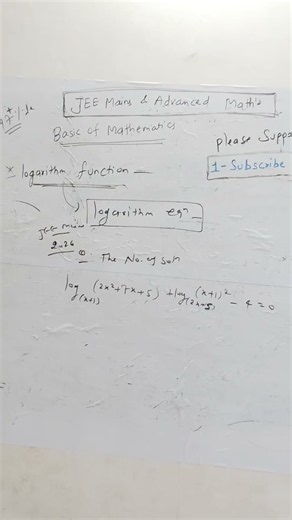 JEE Mains & Advanced Math's
Basic of Mathematics
please Supp
1-Subscribe
* logarithm function
logarithm eqn
JEE Main
2026
The No. of soln
log(x+1) (2x²+7x+5) + log(2x+5) (x+1)² - 4 = 0